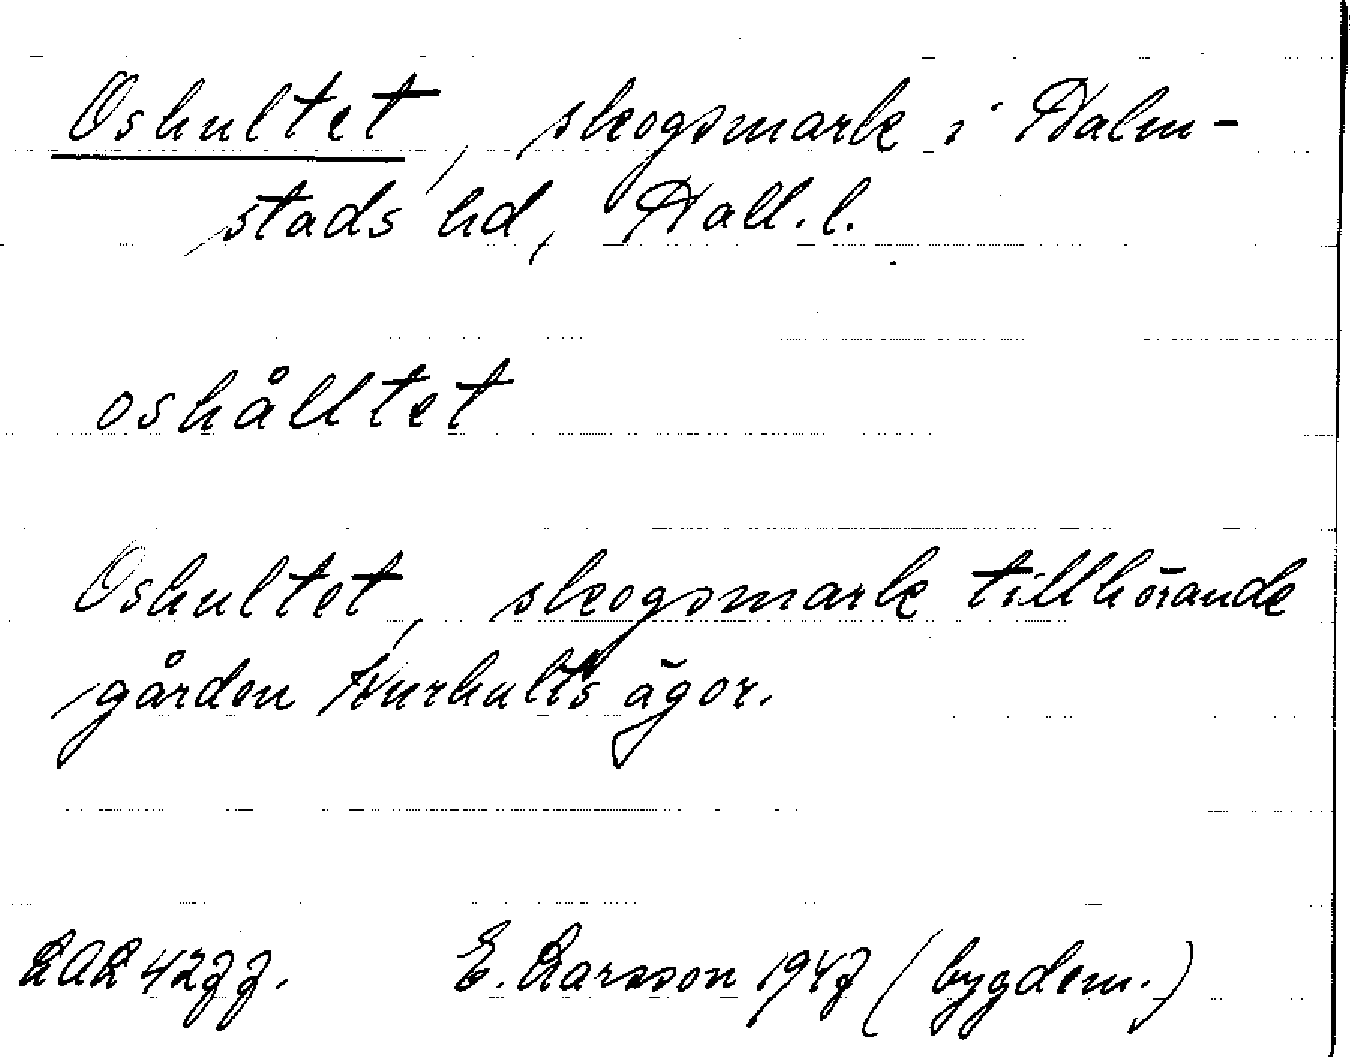 Oshultet, skogsmark i Halm-
stads hd, Hall. l.
oshålltet
Oshultet, skogsmark tillhörande
gården Kurhults ägor.
LAL 4277. E. Larsson 1947 (bygdem.)